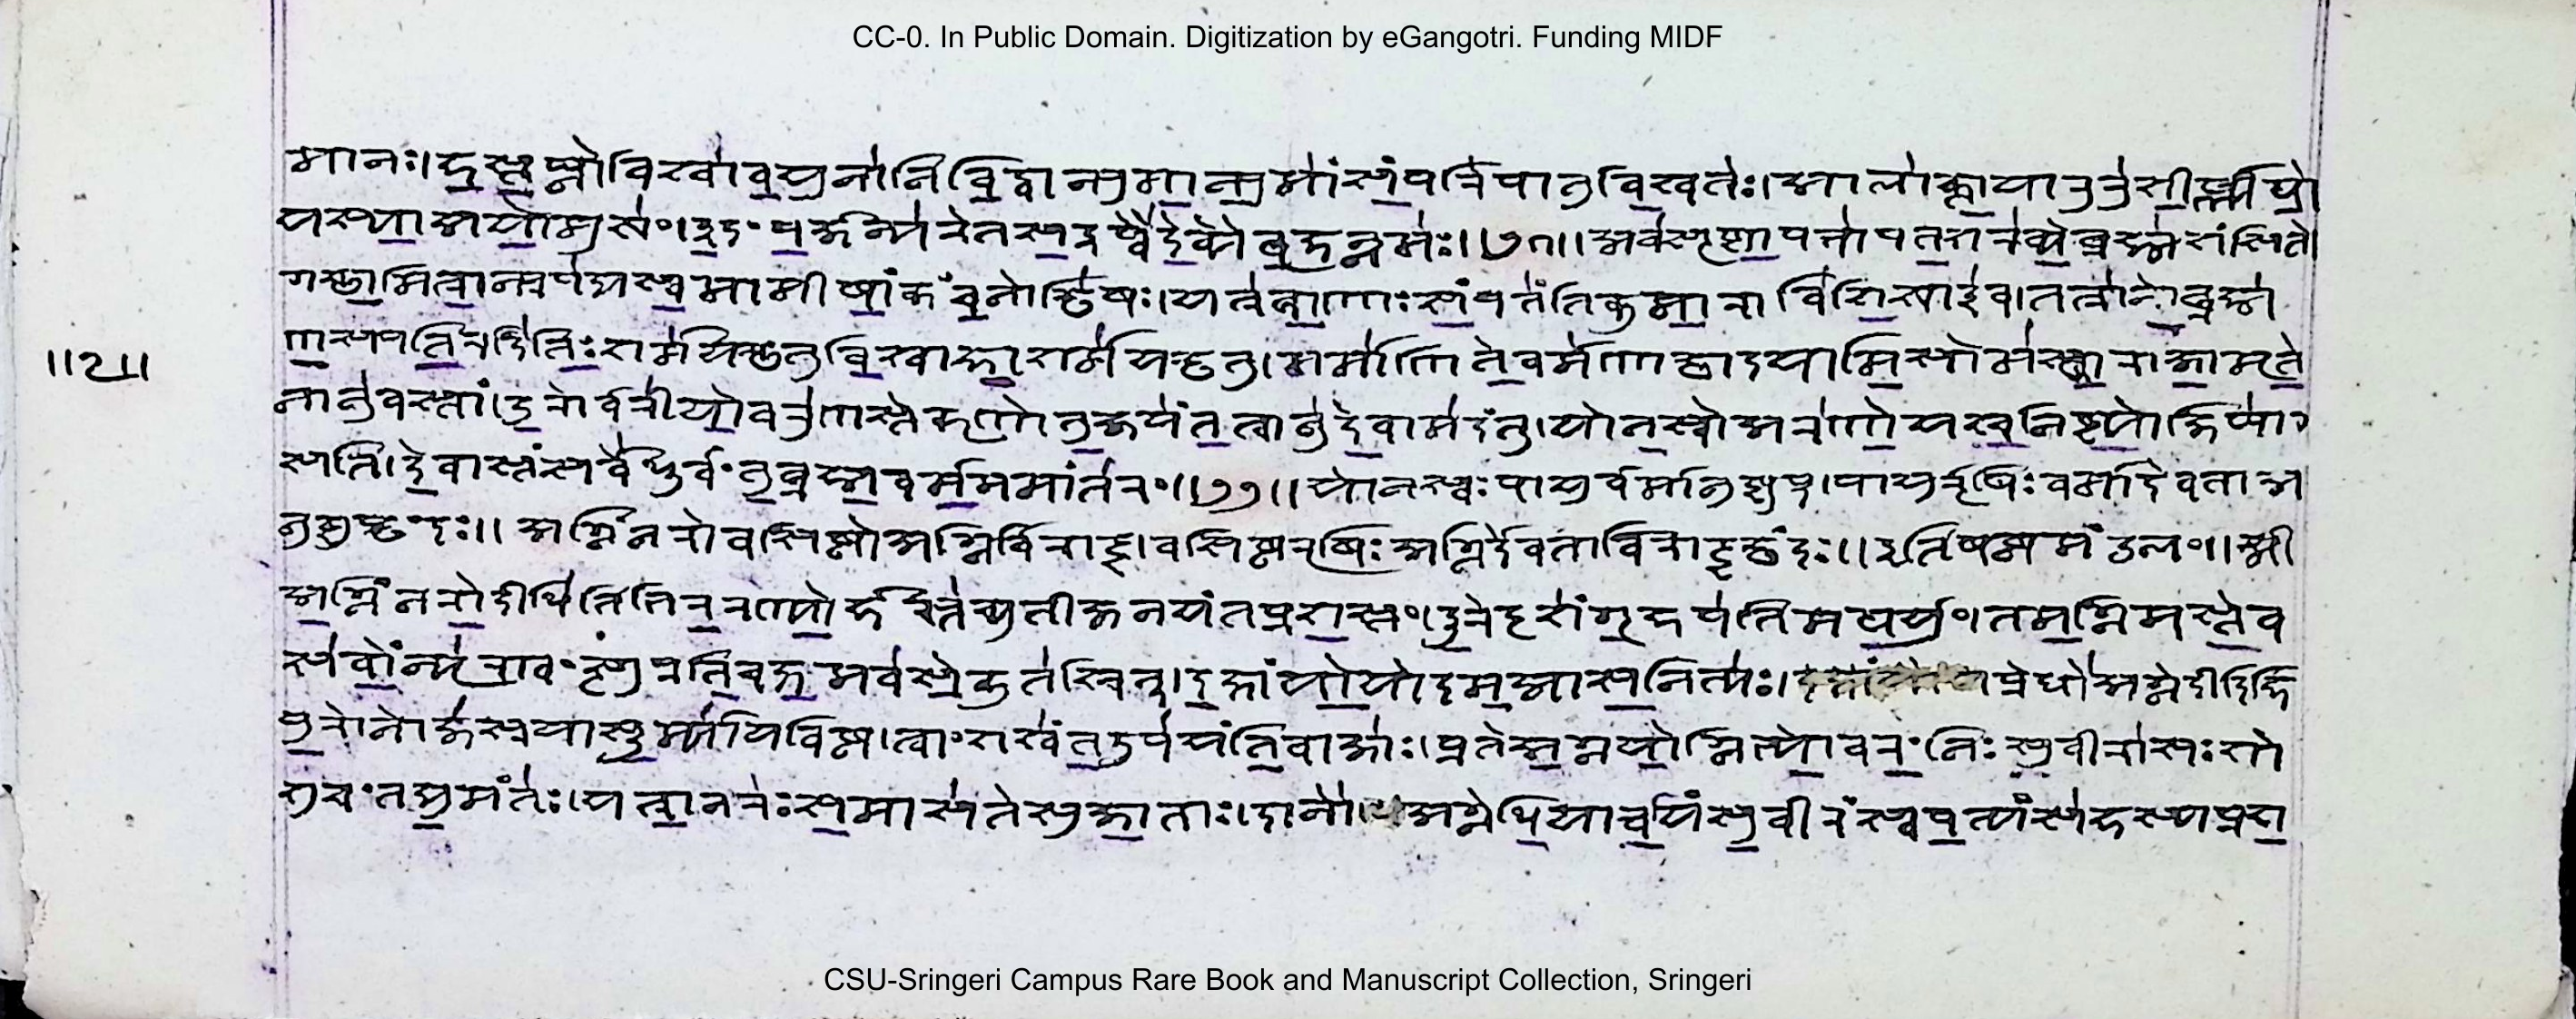 CC-0. In Public Domain. Digitization by eGangotri. Funding MIDF
मानः। हस्तघ्नो विश्वा वयुनानि विद्वान्पुमान्पुमांसं परि पातु विश्वतः। आलाक्ता या रुरुशीर्ष्ण्यथो
यस्या अयो मुखं। इदं पर्जन्यरेतस इष्वै देव्यै बृहन्नमः॥२१॥ अवसृष्टा परा पत शरव्ये ब्रह्मसंशिते।
गच्छामित्रान्प्र पद्यस्व मामीषां कं चनोच्छिषः। यत्र बाणाः संपतंति कुमारा विशिखा इव। तत्रा नो ब्रह्म
णस्पतिरदितिः शर्म यच्छतु विश्वाहा शर्म यच्छतु। मर्माणि ते वर्मणा छादयामि सोमस्त्वा राजामृते
॥२॥
नानु वस्तां। उरोर्वरीयो वरुणस्ते कृणोतु जयंतं त्वानु देवा मदंतु। यो नः स्वो अरणो यश्च निष्ट्यो जिघां
सति। देवास्तं सर्वे धूर्वंतु ब्रह्म वर्म ममांतरं॥२२॥ यो नः स्वः पायुर्वर्मानुष्टुप्। पायुर्ऋषिः वर्मादेवता अ
नुष्टुप्छंदः॥ अग्निं नरो वसिष्ठो अग्निर्विराट्। वसिष्ठऋषिः अग्निर्देवता विराट्छंदः॥ इति षष्ठमंडलं॥ श्री
अग्निं नरो दीधितिभिररण्योर्हस्तच्युती जनयंत प्रशस्तं। दूरेदृशं गृहपतिमथर्युं। तमग्निमस्ते व
सवो न्यृण्वन्त्सुप्रतिचक्षमवसे कुतश्चित्। दक्षाय्यो यो दम आस नित्यः। प्रेद्धो अग्ने दीदिहि
पुरो नोऽजस्रया सूर्म्या यविष्ठ। त्वां शश्वंत उप यंति वाजाः। प्र ते अग्नयोऽग्निभ्यो वरं निः सुवीरासः शो
शुचंत द्युमंतः। यत्रा नरः समासते सुजाताः। दा नो अग्ने धिया रयिं सुवीरं स्वपत्यं सहस्य प्रश
CSU-Sringeri Campus Rare Book and Manuscript Collection, Sringeri